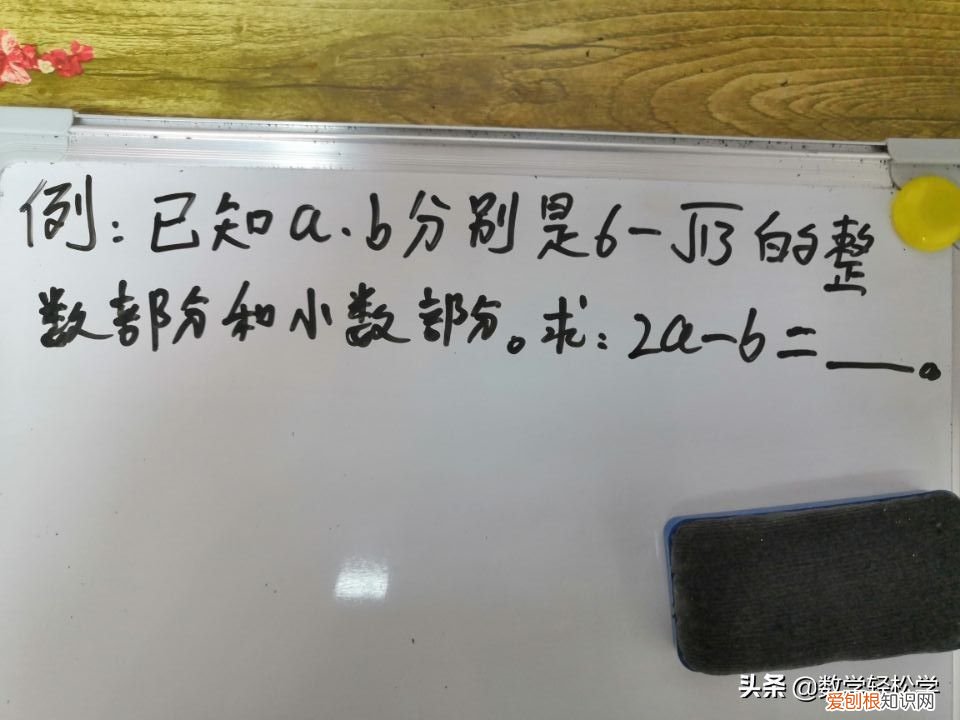 例：已知a、b分别是6-√13的整
数部分和小数部分。求：2a-b=___。
头条 @数学轻松学
爱刨根知识网